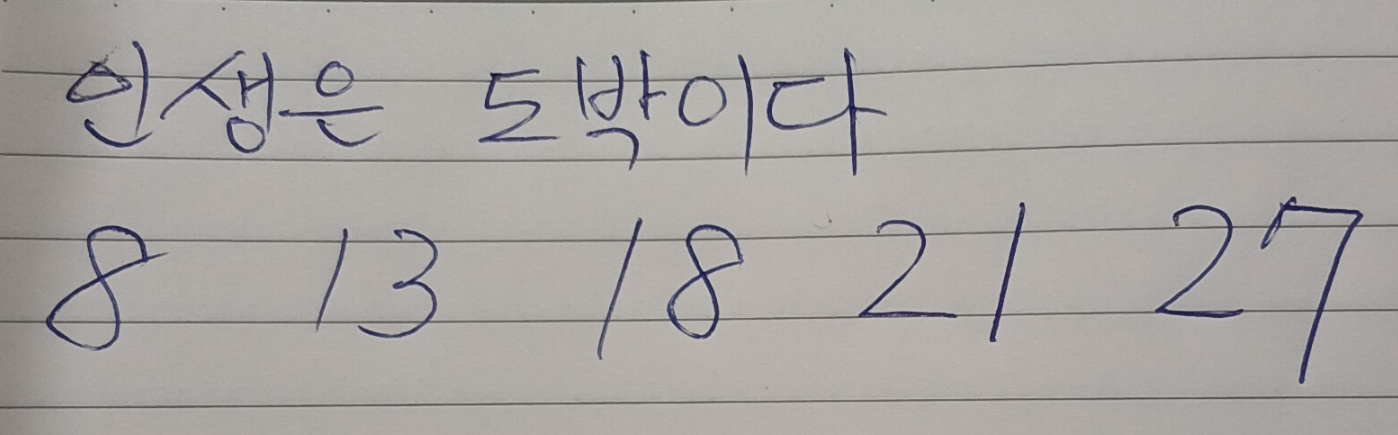 인생은 도박이다
8 13 18 21 27